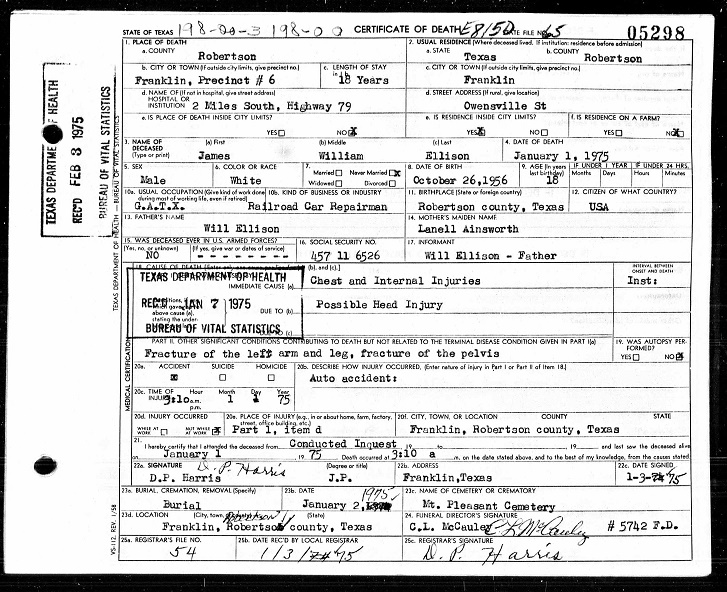 STATE OF TEXAS 198-00-3 198-00 CERTIFICATE OF DEATH E815D STATE FILE NO. 65 05298
1. PLACE OF DEATH
a. COUNTY Robertson
2. USUAL RESIDENCE (Where deceased lived. If institution: residence before admission)
a. STATE Texas b. COUNTY Robertson
b. CITY OR TOWN (If outside city limits, give precinct no.) Franklin, Precinct # 6
c. LENGTH OF STAY in 1b 18 Years
c. CITY OR TOWN (If outside city limits, give precinct no.) Franklin
d. NAME OF (If not in hospital, give street address) HOSPITAL OR INSTITUTION 2 Miles South, Highway 79
d. STREET ADDRESS (If rural, give location) Owensville St
e. IS PLACE OF DEATH INSIDE CITY LIMITS? YES NO X
e. IS RESIDENCE INSIDE CITY LIMITS? YES X NO
f. IS RESIDENCE ON A FARM? YES NO X
3. NAME OF DECEASED (Type or print) (a) First James (b) Middle William (c) Last Ellison
4. DATE OF DEATH January 1, 1975
5. SEX Male
6. COLOR OR RACE White
7. Married Never Married X Widowed Divorced
8. DATE OF BIRTH October 26,1956
9. AGE (In years last birthday) 18
IF UNDER 1 YEAR Months Days
IF UNDER 24 HRS. Hours Minutes
10a. USUAL OCCUPATION (Give kind of work done during most of working life, even if retired) G.A.T.X.
10b. KIND OF BUSINESS OR INDUSTRY Railroad Car Repairman
11. BIRTHPLACE (State or foreign country) Robertson county, Texas
12. CITIZEN OF WHAT COUNTRY? USA
13. FATHER'S NAME Will Ellison
14. MOTHER'S MAIDEN NAME Lanell Ainsworth
15. WAS DECEASED EVER IN U.S. ARMED FORCES? (Yes, no, or unknown) NO (If yes, give war or dates of service) - - - - - - -
16. SOCIAL SECURITY NO. 457 11 6526
17. INFORMANT Will Ellison - Father
18. CAUSE OF DEATH (b), and (c).
INTERVAL BETWEEN ONSET AND DEATH
IMMEDIATE CAUSE (a) Chest and Internal Injuries Inst:
DUE TO (b) Possible Head Injury
above cause (a), stating the under-
DUE TO (c)
TEXAS DEPARTMENT OF HEALTH
REC'D JAN 7 1975
BUREAU OF VITAL STATISTICS
PART II. OTHER SIGNIFICANT CONDITIONS CONTRIBUTING TO DEATH BUT NOT RELATED TO THE TERMINAL DISEASE CONDITION GIVEN IN PART I(a)
Fracture of the left arm and leg, fracture of the pelvis
19. WAS AUTOPSY PERFORMED? YES NO X
20a. ACCIDENT X SUICIDE HOMICIDE
20b. DESCRIBE HOW INJURY OCCURRED. (Enter nature of injury in Part I or Part II of item 18.)
Auto accident:
20c. TIME OF INJURY Hour 3:10 a.m. p.m. Month 1 Day 1 Year 75
20d. INJURY OCCURRED WHILE AT WORK NOT WHILE AT WORK X
20e. PLACE OF INJURY (e.g., in or about home, farm, factory, street, office building, etc.) Part 1, item d
20f. CITY, TOWN, OR LOCATION COUNTY STATE
Franklin, Robertson county, Texas
21. I hereby certify that I attended the deceased from Conducted Inquest, 19 to , 19 and last saw the deceased alive
on January 1 , 19 75 Death occurred at 3:10 a m. on the date stated above, and to the best of my knowledge, from the causes stated.
22a. SIGNATURE D. P. Harris (Degree or title)
D.P. Harris J.P.
22b. ADDRESS Franklin,Texas
22c. DATE SIGNED 1-3-75
23a. BURIAL, CREMATION, REMOVAL (Specify) Burial
23b. DATE January 2, 1975
23c. NAME OF CEMETERY OR CREMATORY Mt. Pleasant Cemetery
23d. LOCATION (City, town, or county) (State)
Franklin, Robertson county, Texas
24. FUNERAL DIRECTOR'S SIGNATURE
C.L. McCauley C L McCauley # 5742 F.D.
25a. REGISTRAR'S FILE NO. 54
25b. DATE REC'D BY LOCAL REGISTRAR 1/3/75
25c. REGISTRAR'S SIGNATURE D. P. Harris
TEXAS DEPARTMENT OF HEALTH
REC'D FEB 3 1975
BUREAU OF VITAL STATISTICS
TEXAS DEPARTMENT OF HEALTH — BUREAU OF VITAL STATISTICS
MEDICAL CERTIFICATION
VS-112, REV. 1/58